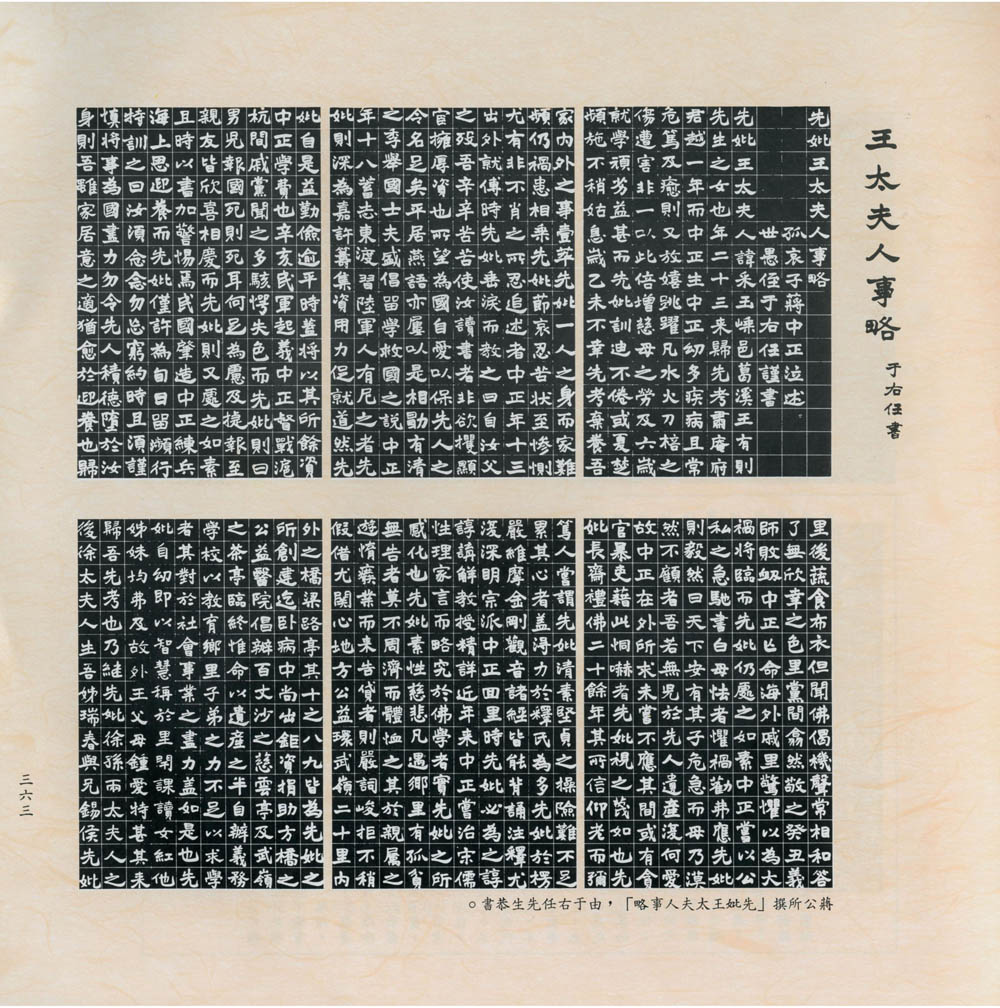 王太夫人事略
于右任書
先妣王太夫人事略
孤哀子蔣中正泣述
世愚侄于右任謹書
先妣王太夫人諱采玉嵊邑葛溪王有則
先生之女也年二十三來歸先考肅庵府
君越一年而中正生中正幼多疾病且常
危篤及癒則又放嬉跳躍凡水火刀棓之
傷遭害非一以此倍增慈母之勞及六歲
就學頑劣益甚而先妣訓迪不倦或夏楚
頻施不稍姑息歲乙未不幸先考棄養吾
家內外之事壹萃先妣一人之身而家難
頻仍禍患相乘先妣節哀忍苦狀至慘惻
尤有非不肖之所忍追述者中正年十三
出外就傅時先妣垂淚而教之曰自汝父
之歿吾辛辛苦苦使汝讀書者非欲攫顯
官擁厚資也所望為國自愛以保先人之
令名足矣平居燕語亦屢以是相勖有清
之季舉國士夫盛倡留學救國之說中正
年十八誓志東渡習陸軍人有尼之者先
妣則深為嘉許籌集資用力促就道然先
妣自是益勤儉逾平時蓋將以其所餘資
中正學費也辛亥民軍起義中正督戰滬
杭間戚黨聞之多駭愕失色而先妣則曰
男兒報國死則死耳何足為慮及捷報至
親友皆欣喜相慶而先妣則又處之如素
且時以書加警惕焉民國肇造中正練兵
海上思迎養而先妣僅許為旬日留瀕行
特訓之曰汝須念念勿忘窮約時且須謹
慎將事為國盡力勿令先人積德墮於汝
身則吾雖家居意之適猶愈於迎養也歸
里後蔬食布衣但聞佛偈機聲常相和答
了無欣幸之色里黨間翕然敬之癸丑義
師敗衂中正亡命海外戚里驚懼以為大
禍將臨而先妣仍處之如素中正嘗以公
私之急馳書白母怯者懼禍勸弗應先妣
則毅然曰天下安有其子危急而母乃漠
然不顧者吾若無兒於先人遺產復何愛
故中正在外所求未嘗不應其間或有貪
官暴吏藉此恫嚇者先妣視之蔑如也先
妣長齋禮佛二十餘年其所信仰老而彌
篤人嘗謂先妣清素堅貞之操險難不足
累其心者蓋得力於釋氏為多先妣於楞
嚴維摩金剛觀音諸經皆能背誦注釋尤
復深明宗派中正回里時先妣必為之諄
諄講解教授精詳近年來中正嘗治宋儒
性理家言而略究於佛學者實先妣之所
感化也先妣素性慈悲凡遇鄉里有孤貧
無告者莫不周濟而體恤之其於親屬之
遊惰廢業而來告貸者則嚴詞峻拒不稍
假借尤關心地方公益環武嶺二十里內
外之橋梁路亭其十之八九皆為先妣之
所創建迄臥病中尚出鉅資捐助方橋之
公益醫院倡辦百丈沙之慈雲亭及武嶺
之茶亭臨終惟命以遺產之半自辦義務
學校以教育鄉里子弟之力不足以求學
者其對於社會事業之盡力蓋如是也先
妣自幼即以智慧稱於里閈課讀女紅他
姊妹均弗及故外王父母鍾愛特甚其來
歸吾先考也乃繼先妣徐孫兩太夫人之
後徐太夫人生吾姊瑞春與兄錫侯先妣
蔣公所撰「先妣王太夫人事略」，由于右任先生恭書。
三六三